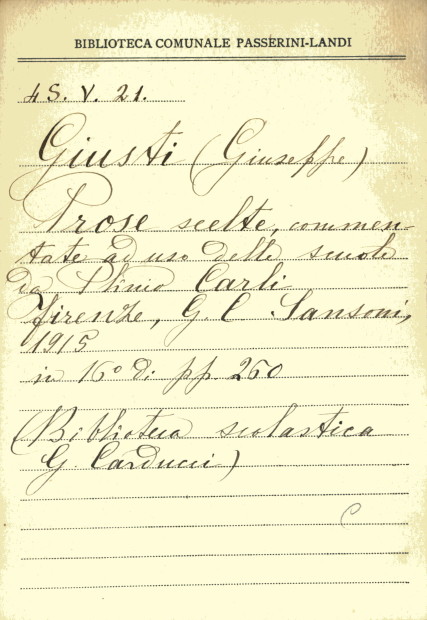 BIBLIOTECA COMUNALE PASSERINI-LANDI
4S. V. 21.
Giusti (Giuseppe)
Prose scelte, commen-
tate ad uso delle scuole
da Plinio Carli
Firenze, G. C. Sansoni,
1915
in 16° di pp. 260
(Biblioteca scolastica
G. Carducci)
C